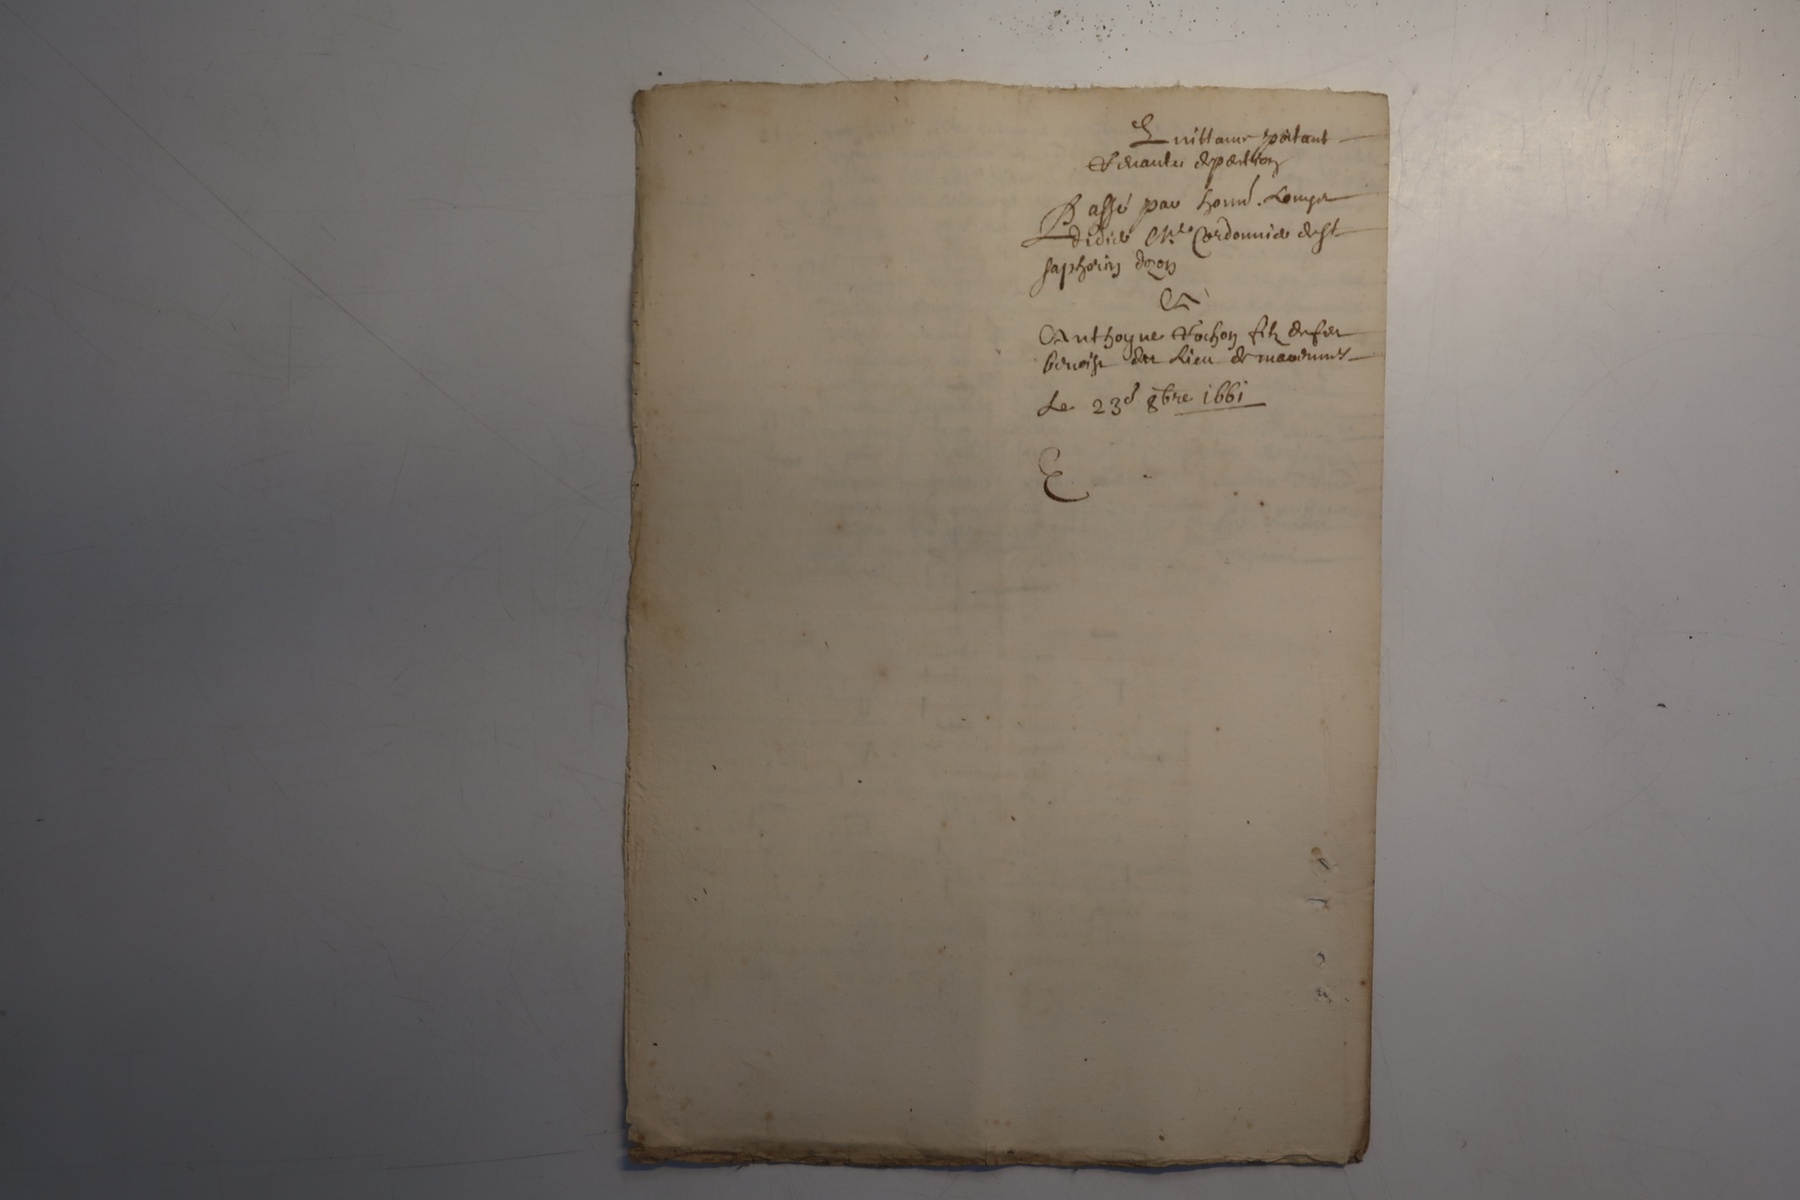 Quittance portant
Passé par honn. Louys
didier Me Cordonnier de St
saphorin dozon
A
Anthoyne Rochon filz de feu
benoist du Lieu de
Le 23e 8bre 1661